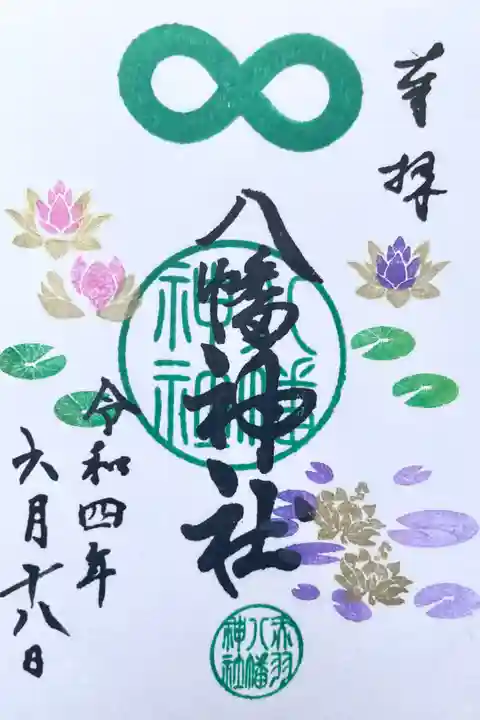 奉拝
八幡神社
八幡神社
赤羽
八幡
神社
令和四年
六月十八日